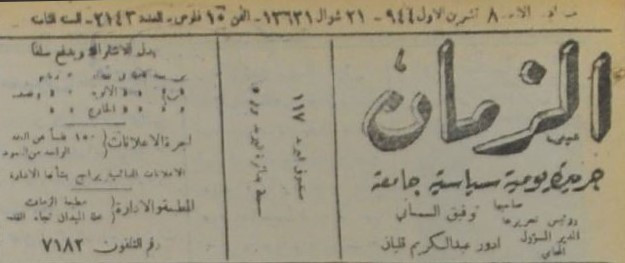 الاحد ٨ تشرين الاول ٩٤٤ - ٢١ شوال ١٣٦٣١ - الثمن ١٥ فلوس - العدد ٢١٤٣ - السنة الثامنة
الزمان
جريدة يومية سياسية جامعة
صاحبها
ورئيس تحريرها توفيق السمعاني
المدير المسؤول
المحامي ادور عبدالكريم قليان
صندوق البريد ١١٧
بدل الاشتراك ويدفع سلفا
اجرة الاعلانات ١٥٠ فلسا عن العقد
الواحد من العمود
الاعلانات الدائمية يراجع بشأنها الادارة
المطبعة والادارة مطبعة الزمان
رقم التلفون ٧١٨٢